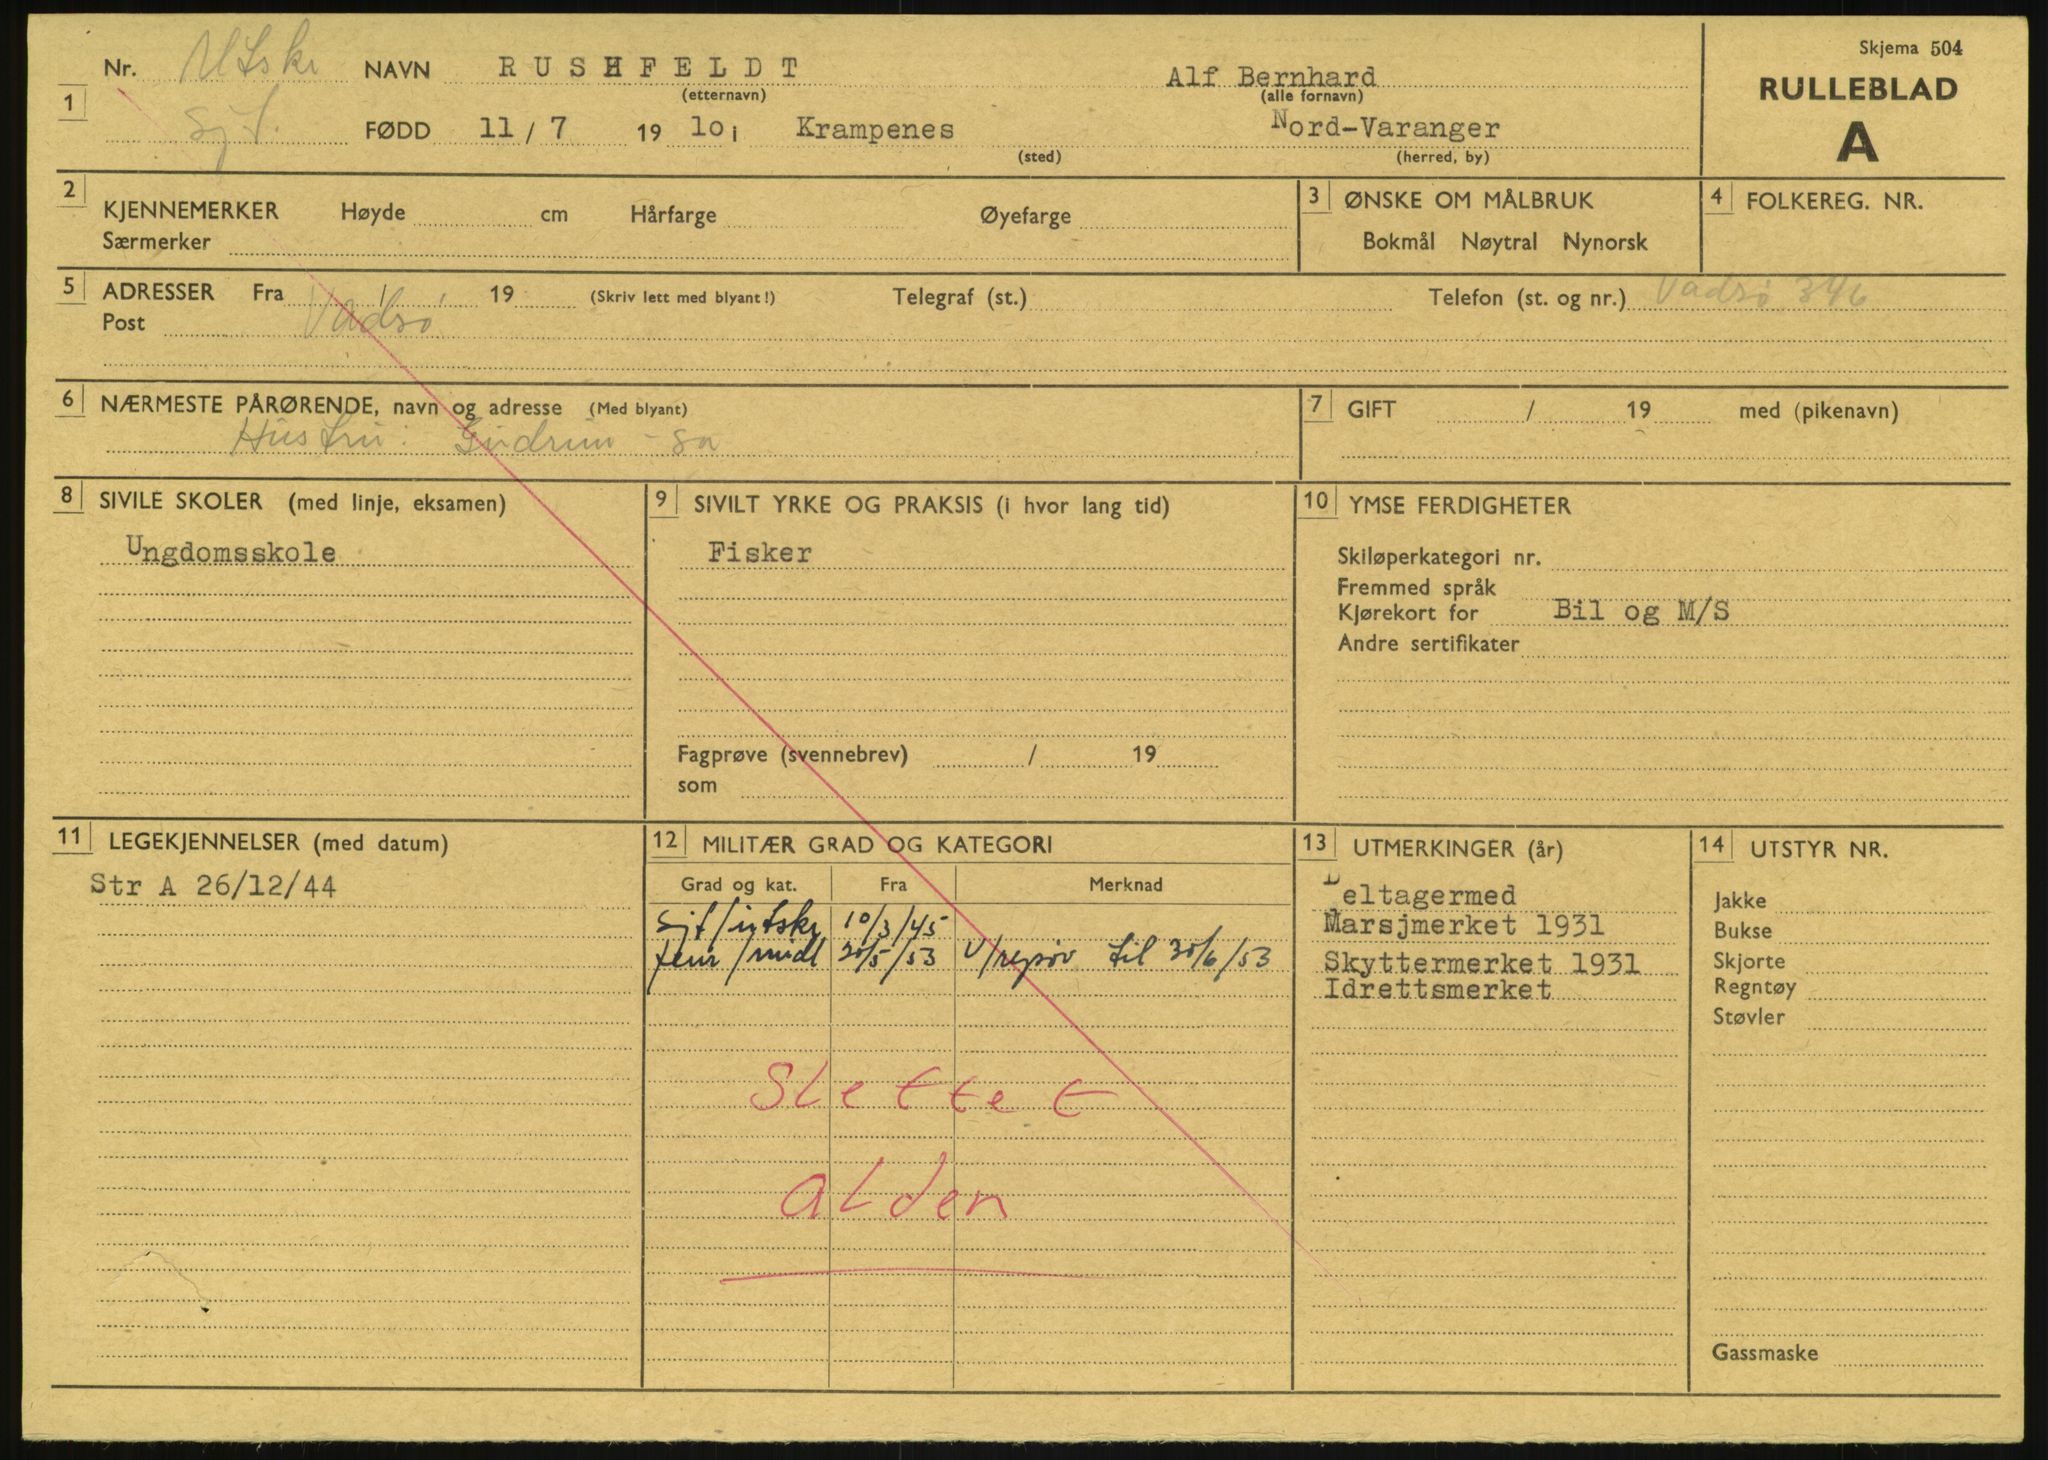 Skjema 504
RULLEBLAD
A
1 Nr. Utskr NAVN RUSHFELDT Alf Bernhard
(etternavn) (alle fornavn)
sjt. FØDD 11/7 1910 i Krampenes Nord-Varanger
(sted) (herred, by)
2 KJENNEMERKER Høyde cm Hårfarge Øyefarge
Særmerker
3 ØNSKE OM MÅLBRUK
Bokmål Nøytral Nynorsk
4 FOLKEREG. NR.
5 ADRESSER Fra / 19 (Skriv lett med blyant!) Telegraf (st.) Telefon (st. og nr.) Vadsø 346
Post Vadsø
6 NÆRMESTE PÅRØRENDE, navn og adresse (Med blyant)
Hustru: Gudrun - sa
7 GIFT / 19 med (pikenavn)
8 SIVILE SKOLER (med linje, eksamen)
Ungdomsskole
9 SIVILT YRKE OG PRAKSIS (i hvor lang tid)
Fisker
Fagprøve (svennebrev) / 19
som
10 YMSE FERDIGHETER
Skiløperkategori nr.
Fremmed språk
Kjørekort for Bil og M/S
Andre sertifikater
11 LEGEKJENNELSER (med datum)
Str A 26/12/44
12 MILITÆR GRAD OG KATEGORI
Grad og kat. Fra Merknad
sjt/utskr 10/3/45
fenr/midl 20/5/53 U/repøv til 30/6/53
Slettet
alden
13 UTMERKINGER (år)
Deltagermed
Marsjmerket 1931
Skyttermerket 1931
Idrettsmerket
14 UTSTYR NR.
Jakke
Bukse
Skjorte
Regntøy
Støvler
Gassmaske